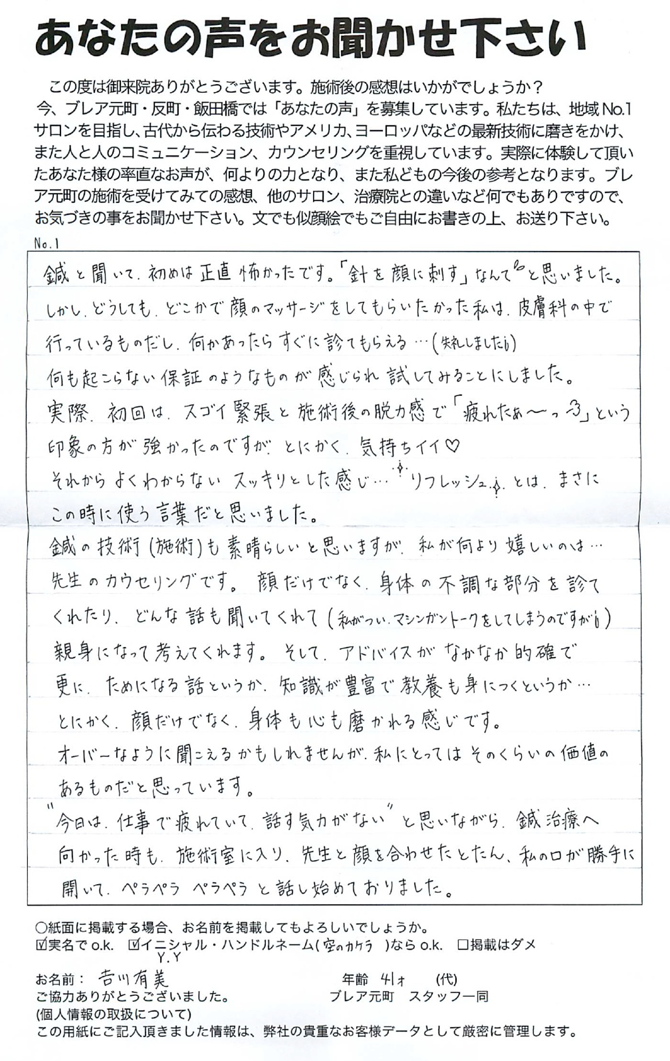 あなたの声をお聞かせ下さい
この度は御来院ありがとうございます。施術後の感想はいかがでしょうか？
今、ブレア元町・反町・飯田橋では「あなたの声」を募集しています。私たちは、地域No.1
サロンを目指し、古代から伝わる技術やアメリカ、ヨーロッパなどの最新技術に磨きをかけ、
また人と人のコミュニケーション、カウンセリングを重視しています。実際に体験して頂い
たあなた様の率直なお声が、何よりの力となり、また私どもの今後の参考となります。ブレ
ア元町の施術を受けてみての感想、他のサロン、治療院との違いなど何でもありですので、
お気づきの事をお聞かせ下さい。文でも似顔絵でもご自由にお書きの上、お送り下さい。
No.1
鍼と聞いて、初めは正直怖かったです。「針を顔に刺す」なんて と思いました。
しかし、どうしても、どこかで顔のマッサージをしてもらいたかった私は、皮膚科の中で
行っているものだし、何かあったらすぐに診てもらえる…(失礼しました)
何も起こらない保証のようなものが感じられ試してみることにしました。
実際、初回は、スゴイ緊張と施術後の脱力感で「疲れたぁ〜っ」という
印象の方が強かったのですが、とにかく、気持ちイイ♡
それからよくわからないスッキリとした感じ…リフレッシュとは、まさに
この時に使う言葉だと思いました。
鍼の技術(施術)も素晴らしいと思いますが、私が何より嬉しいのは…
先生のカウセリングです。顔だけでなく、身体の不調な部分を診て
くれたり、どんな話も聞いてくれて(私がつい、マシンガントークをしてしまうのですが)
親身になって考えてくれます。そして、アドバイスがなかなか的確で
更に、ためになる話というか、知識が豊富で教養も身につくというか…
とにかく、顔だけでなく、身体も心も磨かれる感じです。
オーバーなように聞こえるかもしれませんが、私にとってはそのくらいの価値の
あるものだと思っています。
"今日は、仕事で疲れていて、話す気力がない"と思いながら、鍼治療へ
向かった時も、施術室に入り、先生と顔を合わせたとたん、私の口が勝手に
開いて、ペラペラペラペラと話し始めておりました。
○紙面に掲載する場合、お名前を掲載してもよろしいでしょうか。
☑実名でo.k. ☑イニシャル・ハンドルネーム(空のカケラ)ならo.k. □掲載はダメ
Y.Y
お名前： 吉川有美 年齢 41才 (代)
ご協力ありがとうございました。 ブレア元町 スタッフ一同
(個人情報の取扱について)
この用紙にご記入頂きました情報は、弊社の貴重なお客様データとして厳密に管理します。